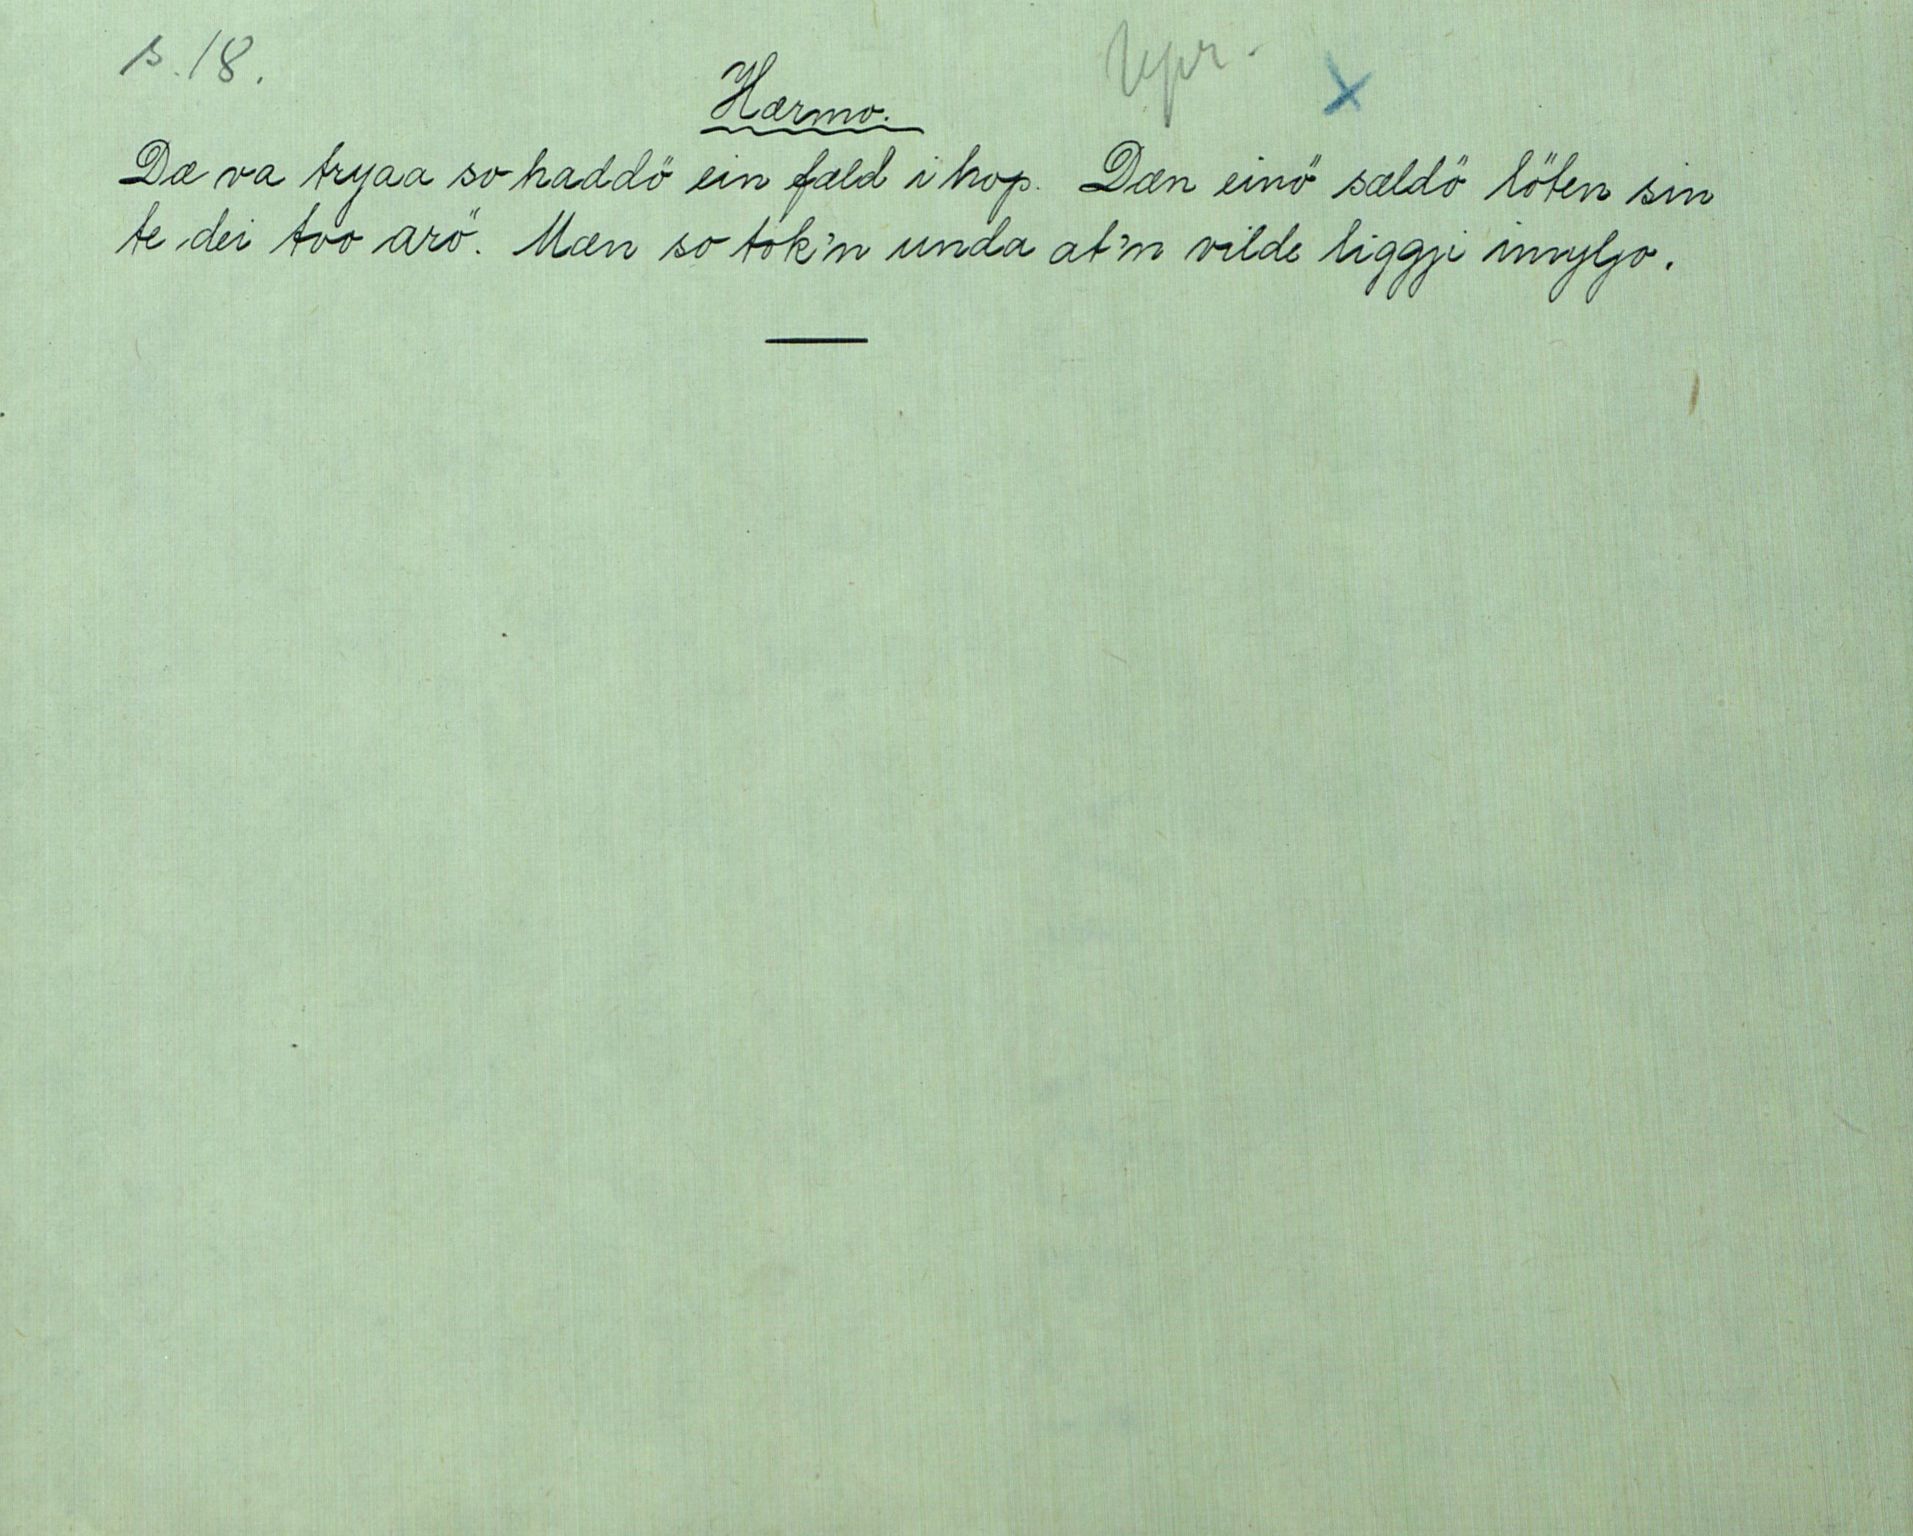 s. 18.
Upr.
x
Hærmo.
Dæ va tryaa so haddö ein fæld i hop. Dæn einö sældö löten sin
te dei too arö. Mæn so tok'n unda at'n vilde liggji imyljo.